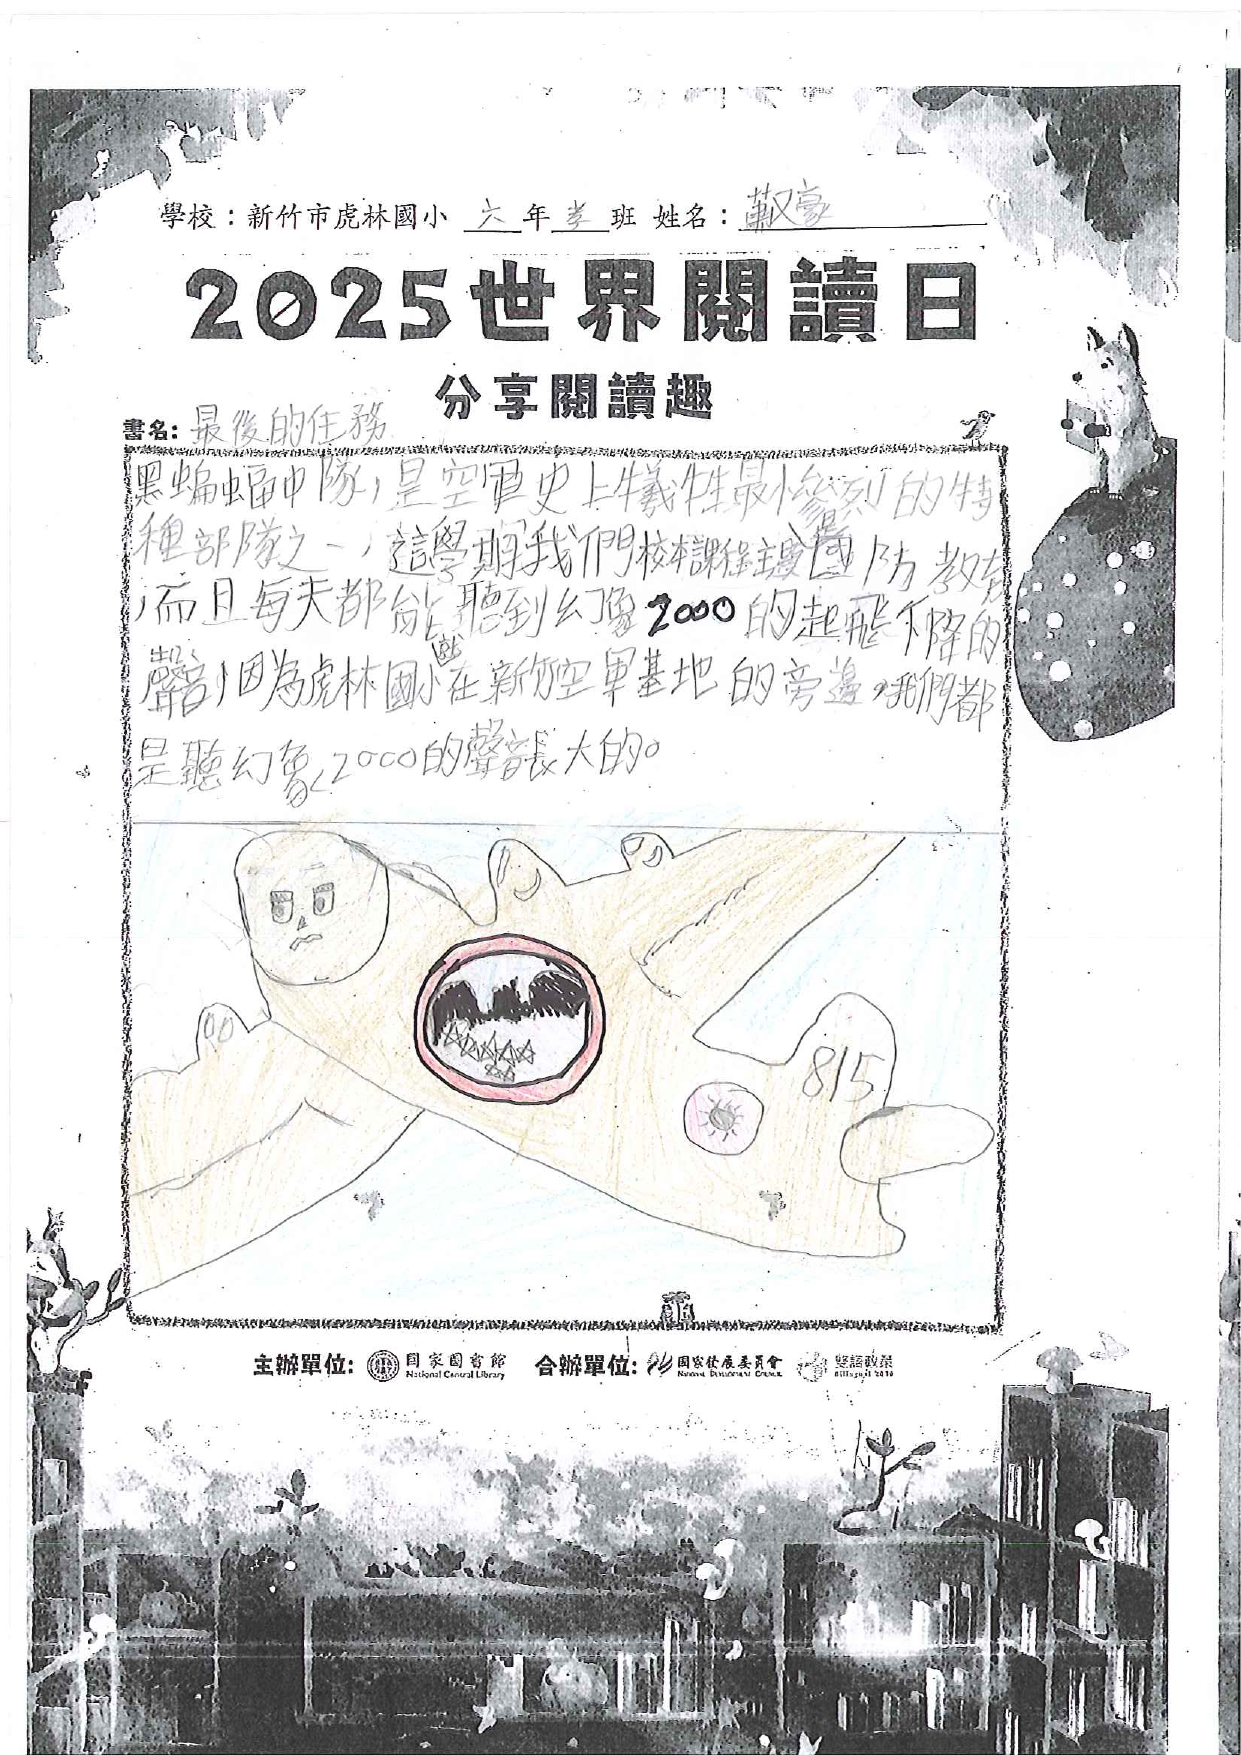 學校：新竹市虎林國小 六年孝班 姓名：
2025世界閱讀日
分享閱讀趣
書名: 最後的任務
黑蝙蝠中隊，是空軍史上犧牲最慘烈的特
種部隊之一，這學期我們校本課程主要是國防教育
，而且每天都能聽到幻象2000的起飛下降的
聲音，因為虎林國小就在新竹空軍基地的旁邊，我們都
是聽幻象2000的聲音長大的。
815
主辦單位: 國家圖書館 National Central Library 合辦單位: 國家發展委員會 National Development Council 雙語政策 Bilingual 2030